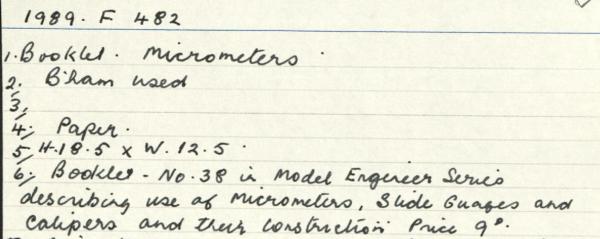 1989. F 482
1. Booklet. Micrometers.
2. B'ham used
3.
4. Paper.
5. H.18.5 x W. 12.5.
6. Booklet - No. 38 in Model Engineer Series
describing use of Micrometers, Slide Guages and
Calipers and their construction. Price 9ᴰ.